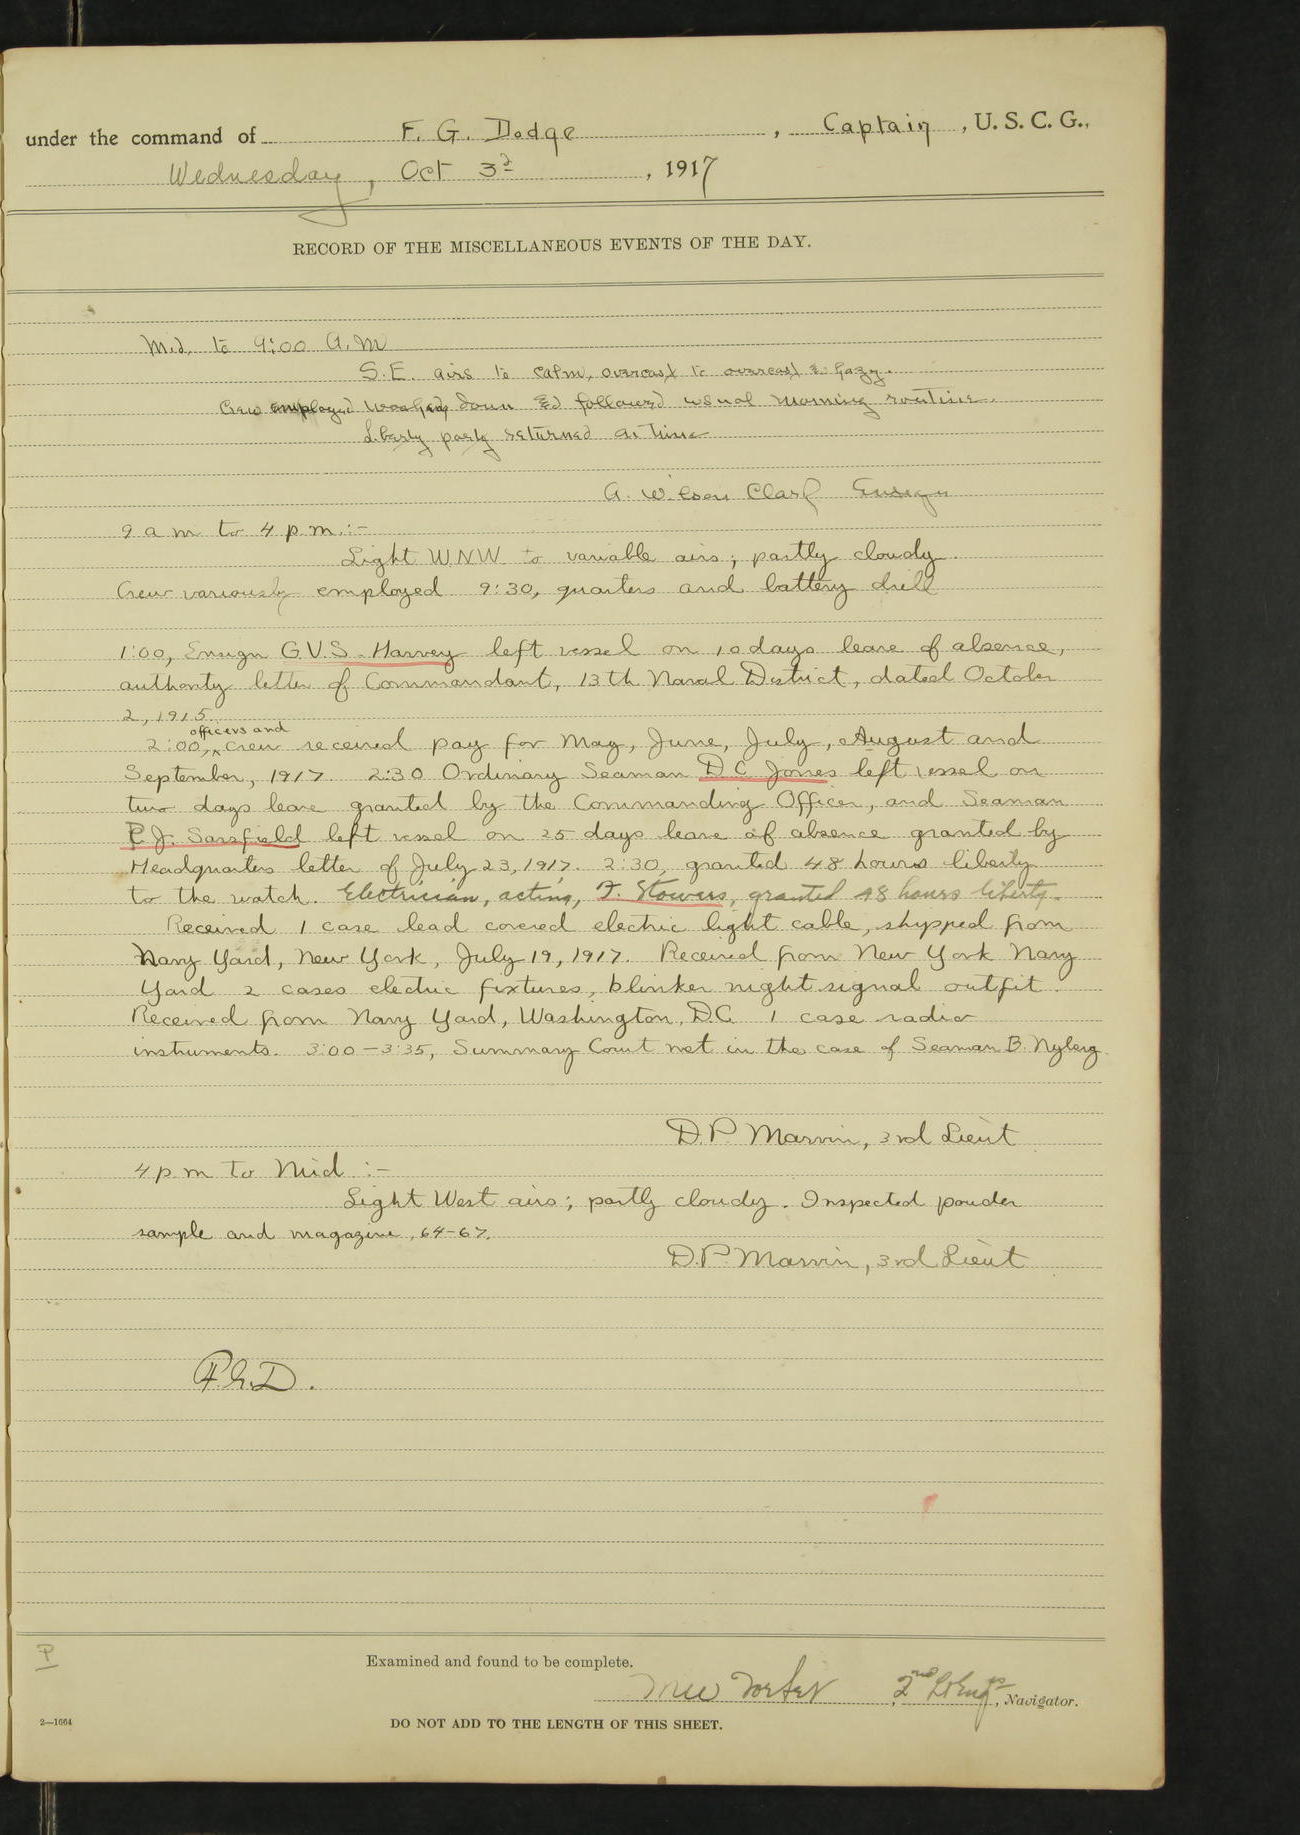 under the command of F. G. Dodge, Captain, U. S. C. G.,
Wednesday, Oct 3d, 1917
RECORD OF THE MISCELLANEOUS EVENTS OF THE DAY.
Mid. to 9:00 A.M
S.E. airs to calm, overcast to overcast & hazy.
Crew employed washing down & followed usual morning routine.
Liberty party returned on time
A. Wilson Clark Ensign
9 a m to 4 p.m.:-
Light WNW to variable airs; partly cloudy.
Crew variously employed 9:30, quarters and battery drill
1:00, Ensign G.V.S. Harvey left vessel on 10 days leave of absence,
authority letter of Commandant, 13th Naval District, dated October
2, 1915.
officers and
2:00, ^ crew received pay for May, June, July, August and
September, 1917. 2:30 Ordinary Seaman D.C. Jones left vessel on
two days leave granted by the Commanding Officer, and Seaman
P.J. Sarsfield left vessel on 25 days leave of absence granted by
Headquarters letter of July 23, 1917. 2:30, granted 48 hours liberty
to the watch. Electrician, acting, F. Stowers, granted 48 hours liberty.
Received 1 case lead covered electric light cable, shipped from
Navy Yard, New York, July 19, 1917. Received from New York Navy
Yard 2 cases electric fixtures, blinker night signal outfit.
Received from Navy Yard, Washington, D.C. 1 case radio
instruments. 3:00-3:35, Summary Court met in the case of Seaman B. Nyberg.
D.P. Marvin, 3rd Lieut
4 p m to Mid :-
Light West airs; partly cloudy. Inspected powder
sample and magazine, 64-67.
D.P. Marvin, 3rd Lieut
F.G.D.
P
Examined and found to be complete.
2nd Lt Engrs, Navigator.
2—1664
DO NOT ADD TO THE LENGTH OF THIS SHEET.